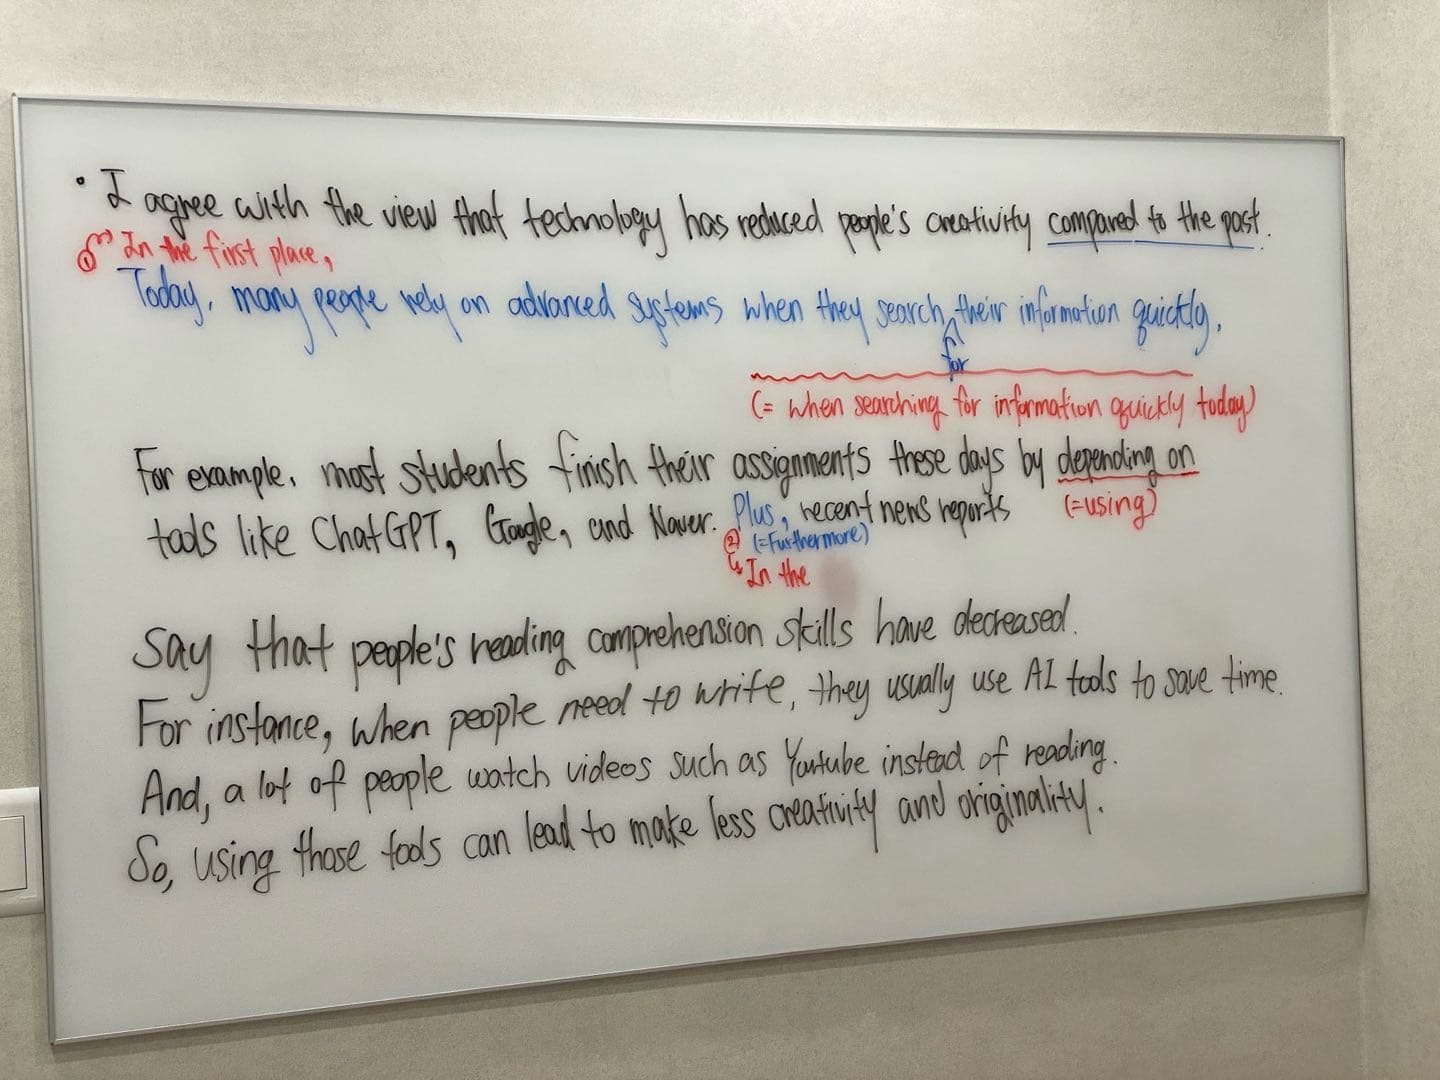 • I agree with the view that technology has reduced people's creativity compared to the past.
① In the first place,
Today, many people rely on advanced systems when they search their information quickly.
for
(= when searching for information quickly today)
For example, most students finish their assignments these days by depending on
(=using)
tools like ChatGPT, Google, and Naver. Plus, recent news reports
② (=Furthermore)
In the
Say that people's reading comprehension skills have decreased.
For instance, when people need to write, they usually use AI tools to save time.
And, a lot of people watch videos such as Youtube instead of reading.
So, using those tools can lead to make less creativity and originality.